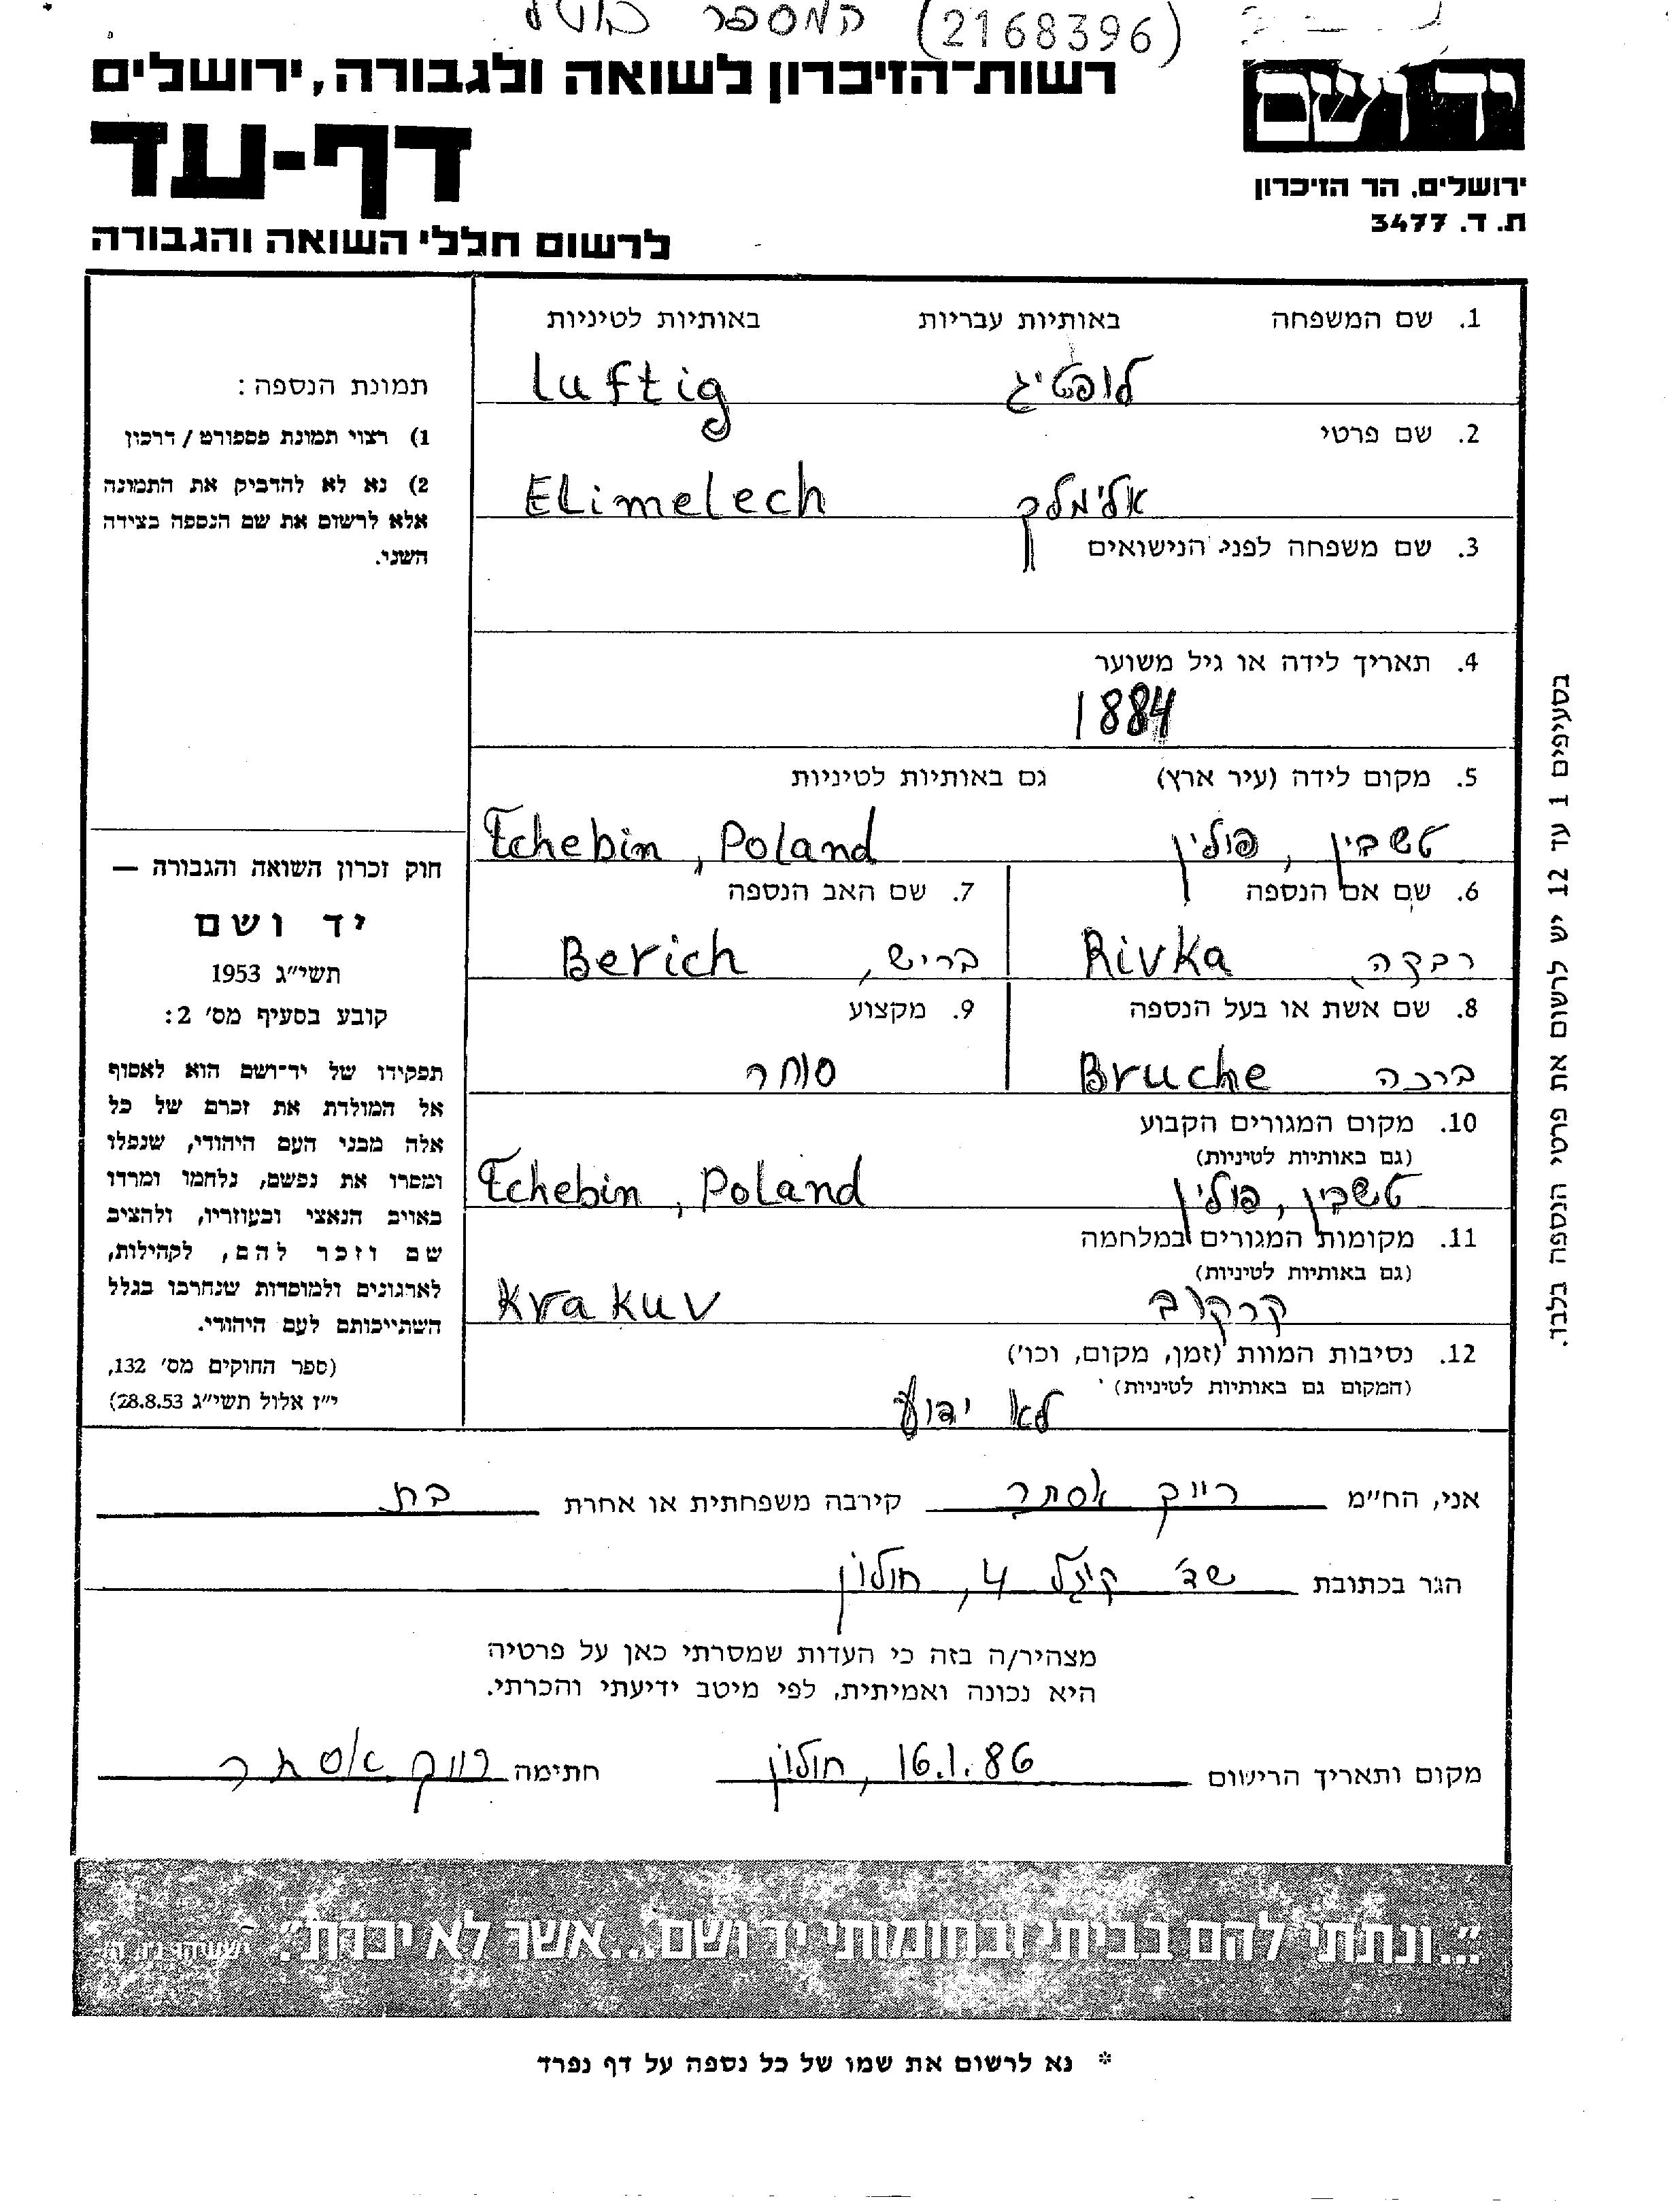 המספר בוטל (2168396)
יד ושם
רשות-הזיכרון לשואה ולגבורה, ירושלים
דף-עד
ירושלים, הר הזיכרון
ת. ד. 3477
לרשום חללי השואה והגבורה
1. שם המשפחה באותיות עבריות באותיות לטיניות
לופטיג Luftig
2. שם פרטי
אלימלך Elimelech
3. שם משפחה לפני הנישואים
4. תאריך לידה או גיל משוער
1884
5. מקום לידה (עיר ארץ) גם באותיות לטיניות
טשבין, פולין Tchebin, Poland
6. שם אם הנספה 7. שם האב הנספה
רבקה Rivka בריש, Berich
8. שם אשת או בעל הנספה 9. מקצוע
ברכה Bruche סוחר
10. מקום המגורים הקבוע
(גם באותיות לטיניות)
טשבין, פולין Tchebin, Poland
11. מקומות המגורים במלחמה
(גם באותיות לטיניות)
קרקוב Krakuv
12. נסיבות המוות (זמן, מקום, וכו')
(המקום גם באותיות לטיניות)
לא ידוע
תמונת הנספה:
1) רצוי תמונת פספורט / דרכון
2) נא לא להדביק את התמונה
אלא לרשום את שם הנספה בצידה
השני.
חוק זכרון השואה והגבורה —
יד ושם
תשי״ג 1953
קובע בסעיף מס׳ 2:
תפקידו של יד־ושם הוא לאסוף
אל המולדת את זכרם של כל
אלה מבני העם היהודי, שנפלו
ומסרו את נפשם, נלחמו ומרדו
באויב הנאצי ובעוזריו, ולהציב
שם וזכר להם, לקהילות,
לארגונים ולמוסדות שנחרבו בגלל
השתייכותם לעם היהודי.
(ספר החוקים מס׳ 132,
י״ז אלול תשי״ג 28.8.53)
בסעיפים 1 עד 12 יש לרשום את פרטי הנספה בלבד.
אני, הח״מ רייך אסתר קירבה משפחתית או אחרת בת
הגר בכתובת שד' קוגל 4, חולון
מצהיר/ה בזה כי העדות שמסרתי כאן על פרטיה
היא נכונה ואמיתית, לפי מיטב ידיעתי והכרתי.
מקום ותאריך הרישום 16.1.86, חולון חתימה רייך אסתר
״...ונתתי להם בביתי ובחומותי יד ושם...אשר לא יכרת״. ישעיהו נ״ו, ה׳
* נא לרשום את שמו של כל נספה על דף נפרד